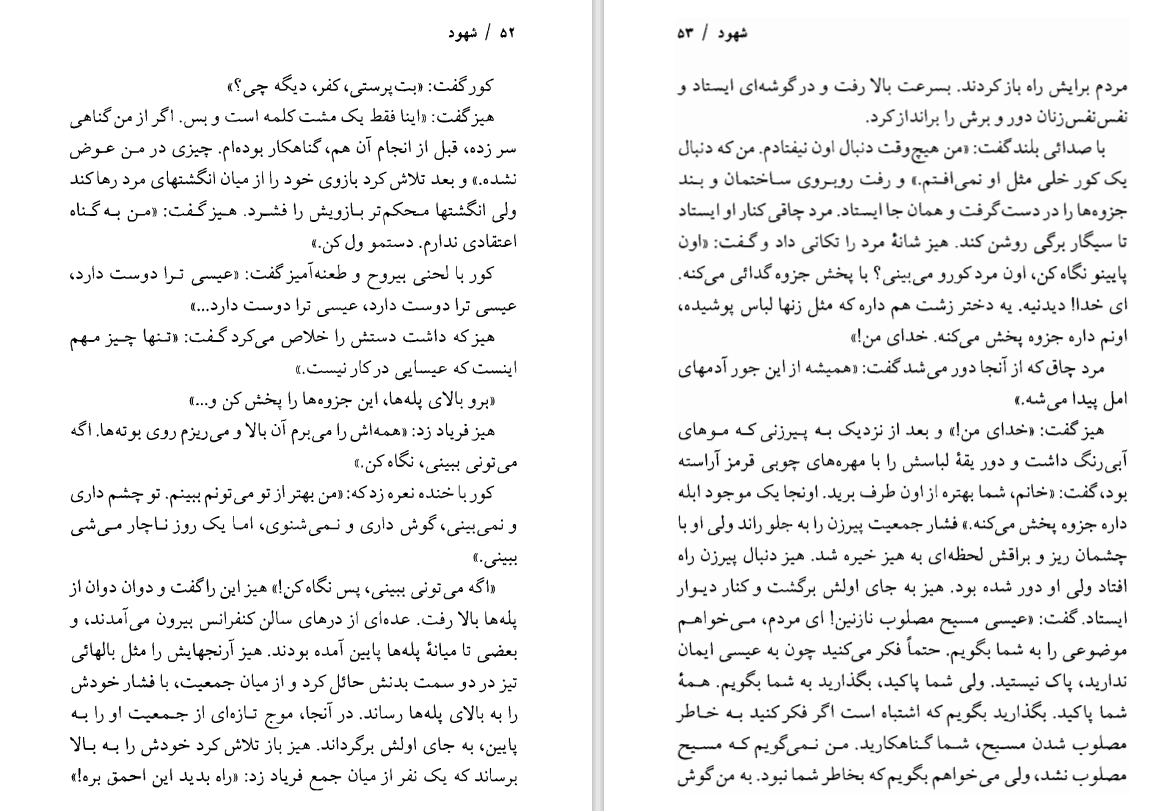 ۵۲ / شهود
کور گفت: «بت‌پرستی، کفر، دیگه چی؟»
هیز گفت: «اینا فقط یک مشت کلمه است و بس. اگر از من گناهی
سر زده، قبل از انجام آن هم، گناهکار بوده‌ام. چیزی در من عوض
نشده.» و بعد تلاش کرد بازوی خود را از میان انگشتهای مرد رها کند
ولی انگشتها محکم‌تر بازویش را فشرد. هیز گفت: «من به گناه
اعتقادی ندارم. دستمو ول کن.»
کور با لحنی بیروح و طعنه‌آمیز گفت: «عیسی ترا دوست دارد،
عیسی ترا دوست دارد، عیسی ترا دوست دارد...»
هیز که داشت دستش را خلاص می‌کرد گفت: «تنها چیز مهم
اینست که عیسایی در کار نیست.»
«برو بالای پله‌ها، این جزوه‌ها را پخش کن و...»
هیز فریاد زد: «همه‌اش را می‌برم آن بالا و می‌ریزم روی بوته‌ها. اگه
می‌تونی ببینی، نگاه کن.»
کور با خنده نعره زد که: «من بهتر از تو می‌تونم ببینم. تو چشم داری
و نمی‌بینی، گوش داری و نمی‌شنوی، اما یک روز ناچار می‌شی
ببینی.»
«اگه می‌تونی ببینی، پس نگاه کن!» هیز این را گفت و دوان دوان از
پله‌ها بالا رفت. عده‌ای از درهای سالن کنفرانس بیرون می‌آمدند، و
بعضی تا میانهٔ پله‌ها پایین آمده بودند. هیز آرنجهایش را مثل بالهائی
تیز در دو سمت بدنش حائل کرد و از میان جمعیت، با فشار خودش
را به بالای پله‌ها رساند. در آنجا، موج تازه‌ای از جمعیت او را به
پایین، به جای اولش برگرداند. هیز باز تلاش کرد خودش را به بالا
برساند که یک نفر از میان جمع فریاد زد: «راه بدید این احمق بره!»
شهود / ۵۳
مردم برایش راه باز کردند. بسرعت بالا رفت و در گوشه‌ای ایستاد و
نفس‌نفس‌زنان دور و برش را برانداز کرد.
با صدائی بلند گفت: «من هیچ‌وقت دنبال اون نیفتادم. من که دنبال
یک کور خلی مثل او نمی‌افتم.» و رفت روبروی ساختمان و بند
جزوه‌ها را در دست گرفت و همان جا ایستاد. مرد چاقی کنار او ایستاد
تا سیگار برگی روشن کند. هیز شانهٔ مرد را تکانی داد و گفت: «اون
پایینو نگاه کن، اون مرد کورو می‌بینی؟ با پخش جزوه گدائی می‌کنه.
ای خدا! دیدنیه. یه دختر زشت هم داره که مثل زنها لباس پوشیده،
اونم داره جزوه پخش می‌کنه. خدای من!»
مرد چاق که از آنجا دور می‌شد گفت: «همیشه از این جور آدمهای
امل پیدا می‌شه.»
هیز گفت: «خدای من!» و بعد از نزدیک به پیرزنی که موهای
آبی‌رنگ داشت و دور یقهٔ لباسش را با مهره‌های چوبی قرمز آراسته
بود، گفت: «خانم، شما بهتره از اون طرف برید. اونجا یک موجود ابله
داره جزوه پخش می‌کنه.» فشار جمعیت پیرزن را به جلو راند ولی او با
چشمان ریز و براقش لحظه‌ای به هیز خیره شد. هیز دنبال پیرزن راه
افتاد ولی او دور شده بود. هیز به جای اولش برگشت و کنار دیوار
ایستاد. گفت: «عیسی مسیح مصلوب نازنین! ای مردم، می‌خواهم
موضوعی را به شما بگویم. حتماً فکر می‌کنید چون به عیسی ایمان
ندارید، پاک نیستید. ولی شما پاکید، بگذارید به شما بگویم. همهٔ
شما پاکید. بگذارید بگویم که اشتباه است اگر فکر کنید به خاطر
مصلوب شدن مسیح، شما گناهکارید. من نمی‌گویم که مسیح
مصلوب نشد، ولی می‌خواهم بگویم که بخاطر شما نبود. به من گوش